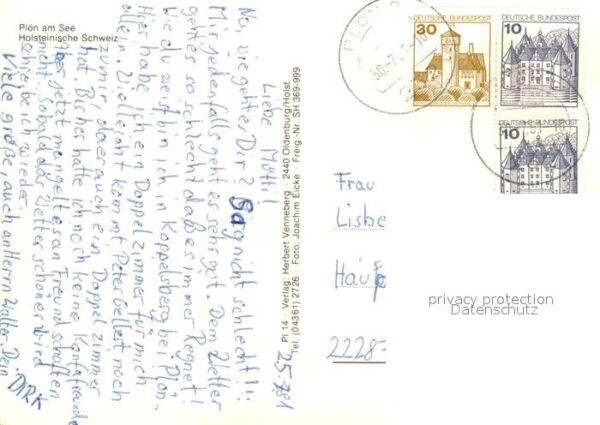 Plön am See
Holsteinische Schweiz
Liebe Mutti!
Na, wie geht es Dir? Gar nicht schlecht!!!
Mir jedenfalls geht es sehr gut. Dem Wetter
geht es so schlecht daß es immer Regnet!
Wie du weist bin ich in Koppelsberg bei Plön.
Hier habe ich ein Doppelzimmer für mich
allein. Vielleicht kommt Peter Gellest noch
zu mir, da er auch ein Doppelzimmer
hat. Bisher hatte ich noch keine Kontaktfreunde
Aber jetzt mangelt es an Freundschaften
nicht. Sobald das Wetter schöner wird
schreibe ich wieder.
Viele größe, auch an Herrn Walter Dein
DIRK
25.7.81
Pl 14 · Verlag: Herbert Venneberg · 2440 Oldenburg/Holst.
Tel. (04361) 2726 · Foto: Joachim Eicke · Freig.-Nr. SH 369-999
30 DEUTSCHE BUNDESPOST
10 DEUTSCHE BUNDESPOST
10 DEUTSCHE BUNDESPOST
PLÖN
30.-7.
Frau
Lisbe
Haup
2228-
privacy protection
Datenschutz